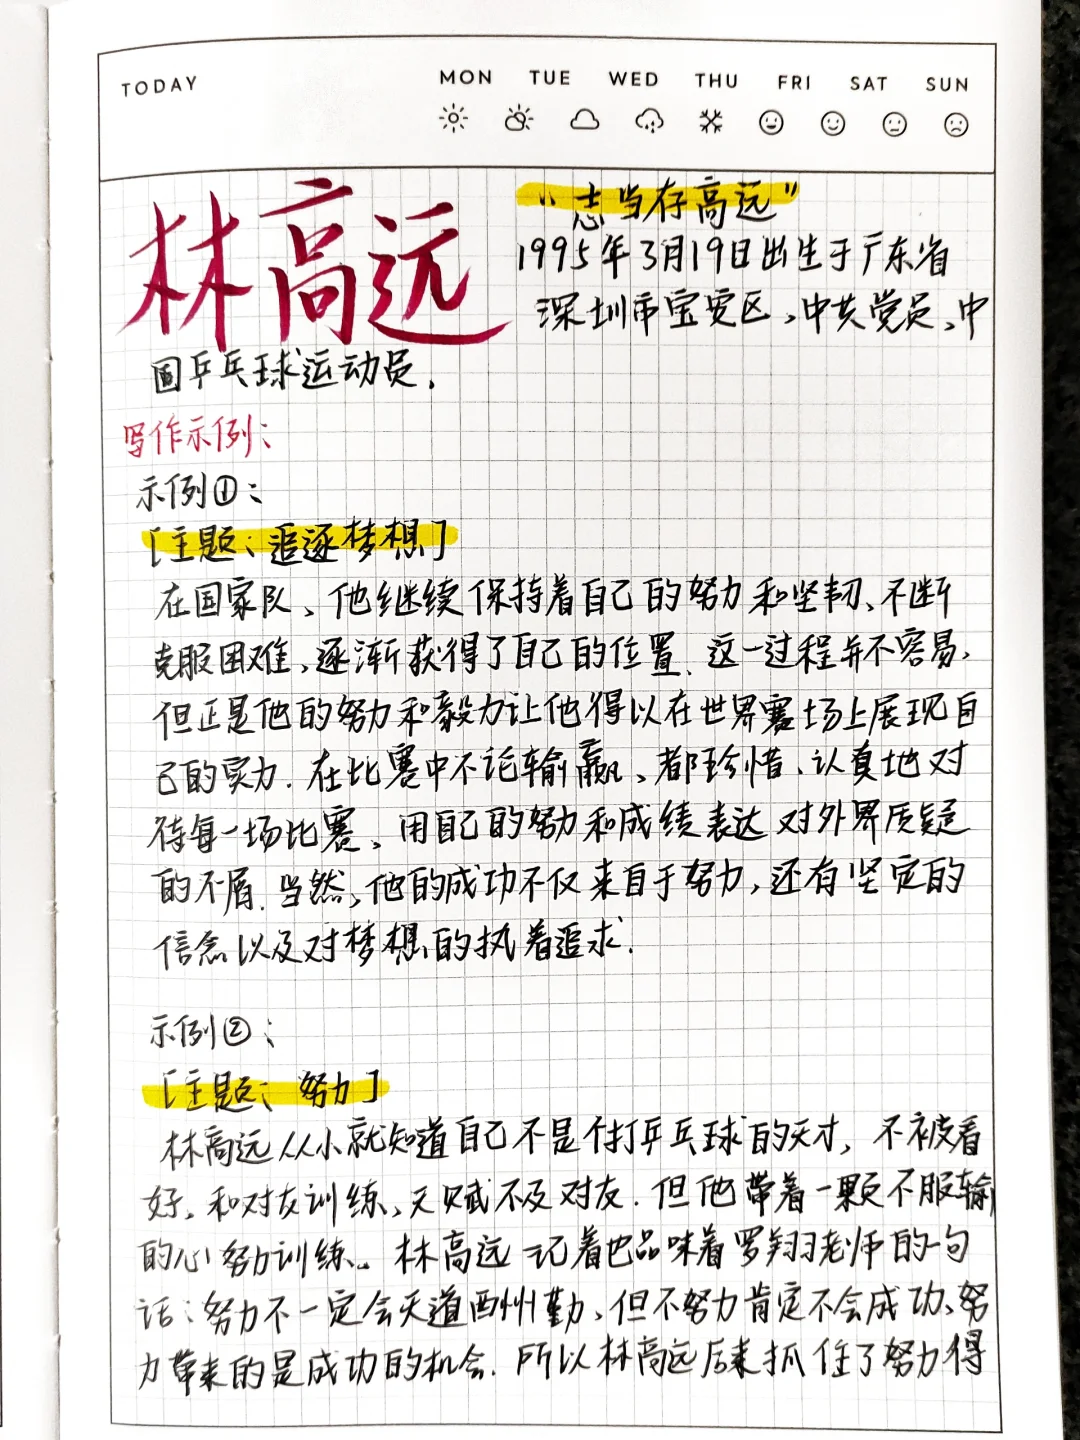 TODAY MON TUE WED THU FRI SAT SUN
林高远
"志当存高远"
1995年3月19日出生于广东省
深圳市宝安区,中共党员,中
国乒乓球运动员.
写作示例:
示例①:
[主题:追逐梦想]
在国家队、他继续保持着自己的努力和坚韧、不断
克服困难,逐渐获得了自己的位置.这一过程并不容易,
但正是他的努力和毅力让他得以在世界赛场上展现自
己的实力.在比赛中不论输赢、都珍惜、认真地对
待每一场比赛,用自己的努力和成绩表达对外界质疑
的不屑.当然,他的成功不仅来自于努力,还有坚定的
信念以及对梦想的执着追求.
示例②:
[主题:努力]
林高远从小就知道自己不是个打乒乓球的天才,不被看
好,和对友训练,天赋不及对友.但他带着一颗不服输
的心努力训练.林高远记着也品味着罗翔老师的一句
话:努力不一定会天道酬勤,但不努力肯定不会成功,努
力带来的是成功的机会.所以林高远后来抓住了努力得